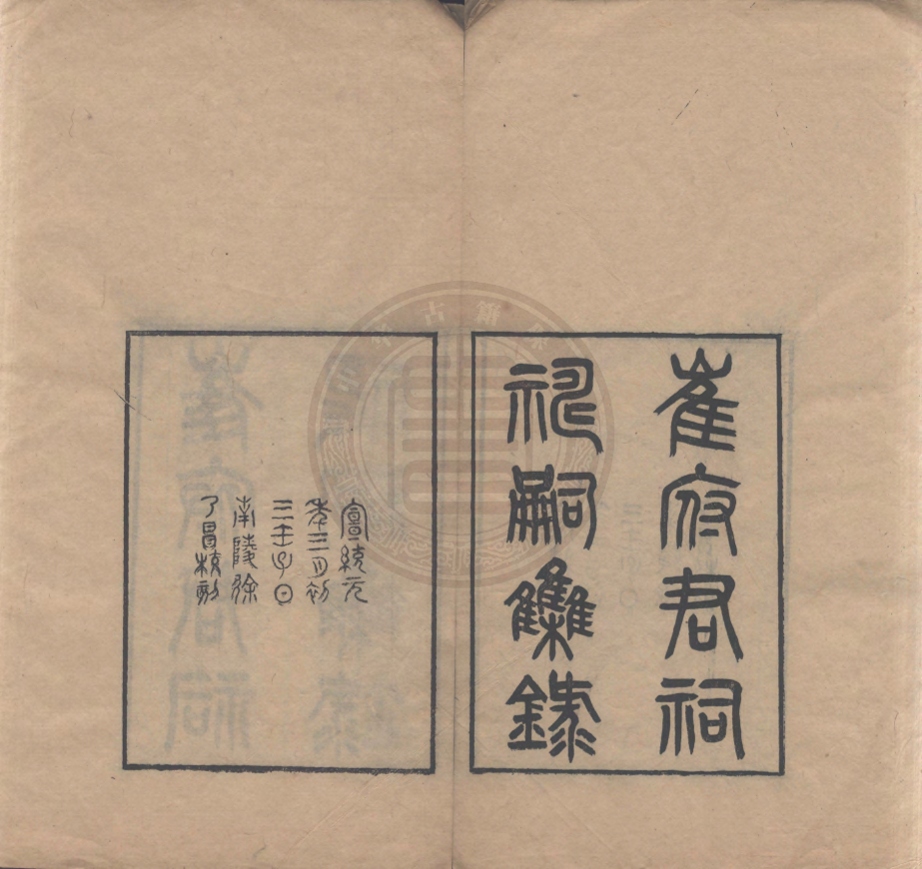 崔府君祠
嗣雧錄
宣統元
年三月初
三壬子日
南陵徐
乃昌校刻